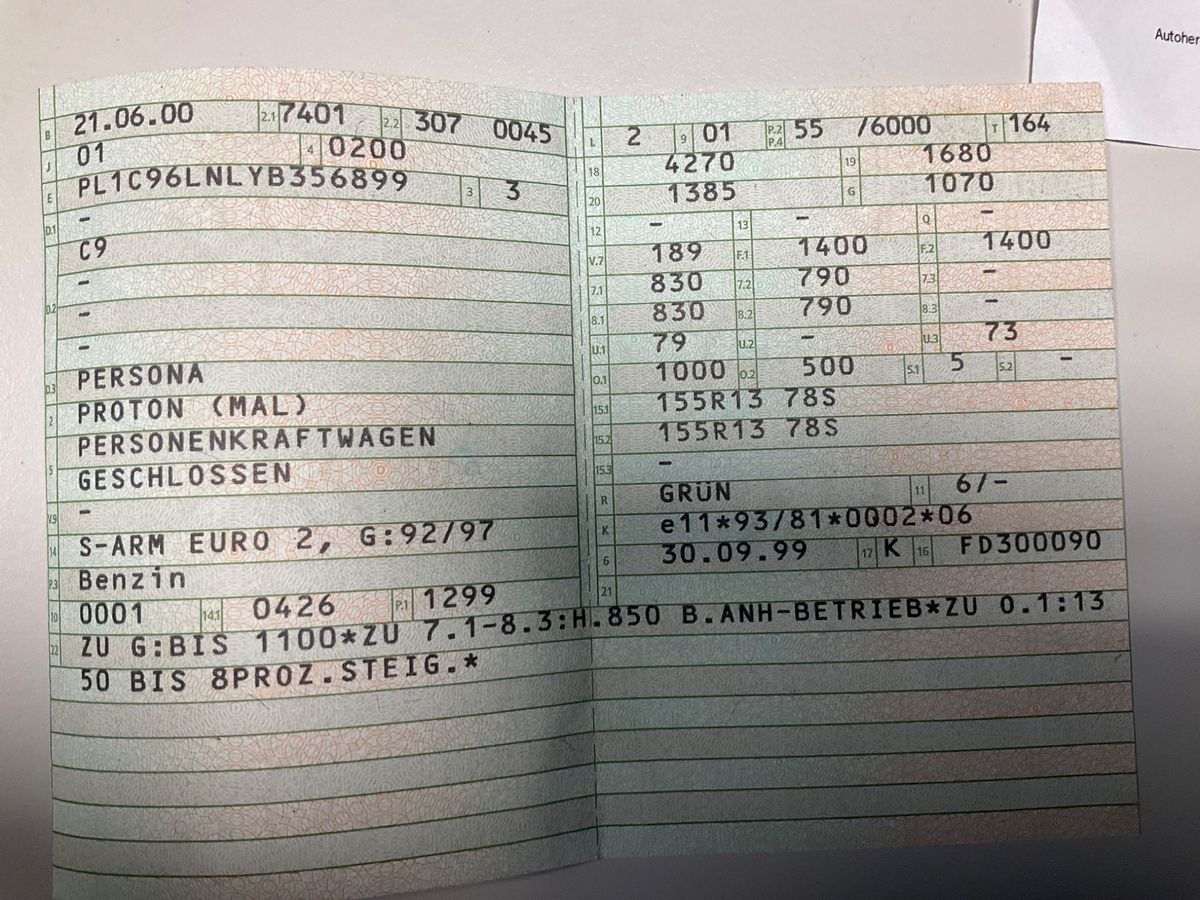 Autoher
B 21.06.00 2.1 7401 2.2 307 0045
J 01 4 0200
E PL1C96LNLYB356899 3 3
D.1 -
C9
-
D.2 -
-
D.3 PERSONA
2 PROTON (MAL)
PERSONENKRAFTWAGEN
5 GESCHLOSSEN
V.9 -
14 S-ARM EURO 2, G:92/97
P.3 Benzin
10 0001 14.1 0426 P.1 1299
L 2 9 01 P.2 P.4 55 /6000 T 164
18 4270 19 1680
20 1385 G 1070
12 - 13 - Q -
V.7 189 F.1 1400 F.2 1400
7.1 830 7.2 790 7.3 -
8.1 830 8.2 790 8.3 -
U.1 79 U.2 - U.3 73
O.1 1000 O.2 500 S.1 5 S.2 -
15.1 155R13 78S
15.2 155R13 78S
15.3 -
R GRÜN 11 6/-
K e11*93/81*0002*06
6 30.09.99 17 K 16 FD300090
21
22 ZU G:BIS 1100*ZU 7.1-8.3:H.850 B.ANH-BETRIEB*ZU O.1:13
50 BIS 8PROZ.STEIG.*